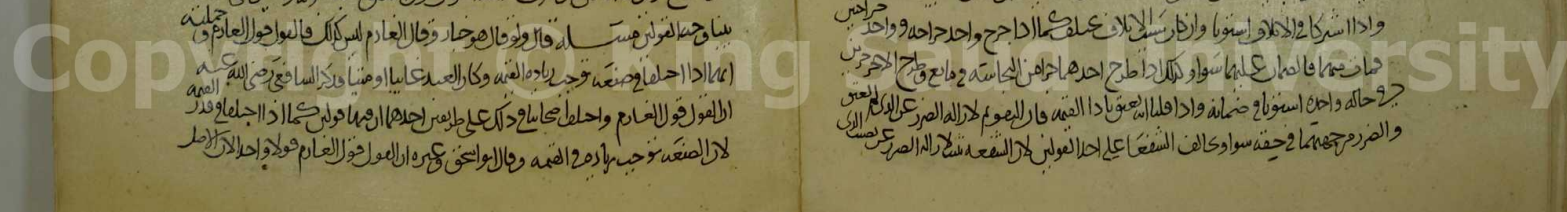 واذا اشتركا في الاتلاف استويا وان كان سبب الاتلاف مختلف كما اذا جرح واحد جراحة وواحد جراحتين
فمات منهما فالضمان عليهما سوا وكذلك اذا طرح احدهما جزا من النجاسة في مايع وطرح الاخر جزين
في حالة واحدة استويا في ضمانه واذا قلنا انه يعتق باداء القيمة فان التقويم لازالة الضرر عن الذي لم يعتق
والضرر من جهتهما في حقه سوا ويخالف الشفعا على احد القولين لان الشفعة لازالة الضرر عن نصيب الذي
بينا وجه القولين مسالة قال ولو قال هو خباز وقال الغارم ليس كذلك فالقول قول الغارم وجملته
انهما اذا اختلفا في صنعة توجب زيادة القيمة وكان العبد غايبا او ميتا فذكر الشافعي رضي الله عنه
ان القول قول الغارم واختلف اصحابنا في ذلك على طريقين احدهما ان فيها قولين كما اذا اختلفا في قدر القيمة
لان الصنعة توجب زيادة في القيمة وقال ابو اسحق وغيره ان القول قول الغارم قولا واحدا لان الاصل
Copyright © King University